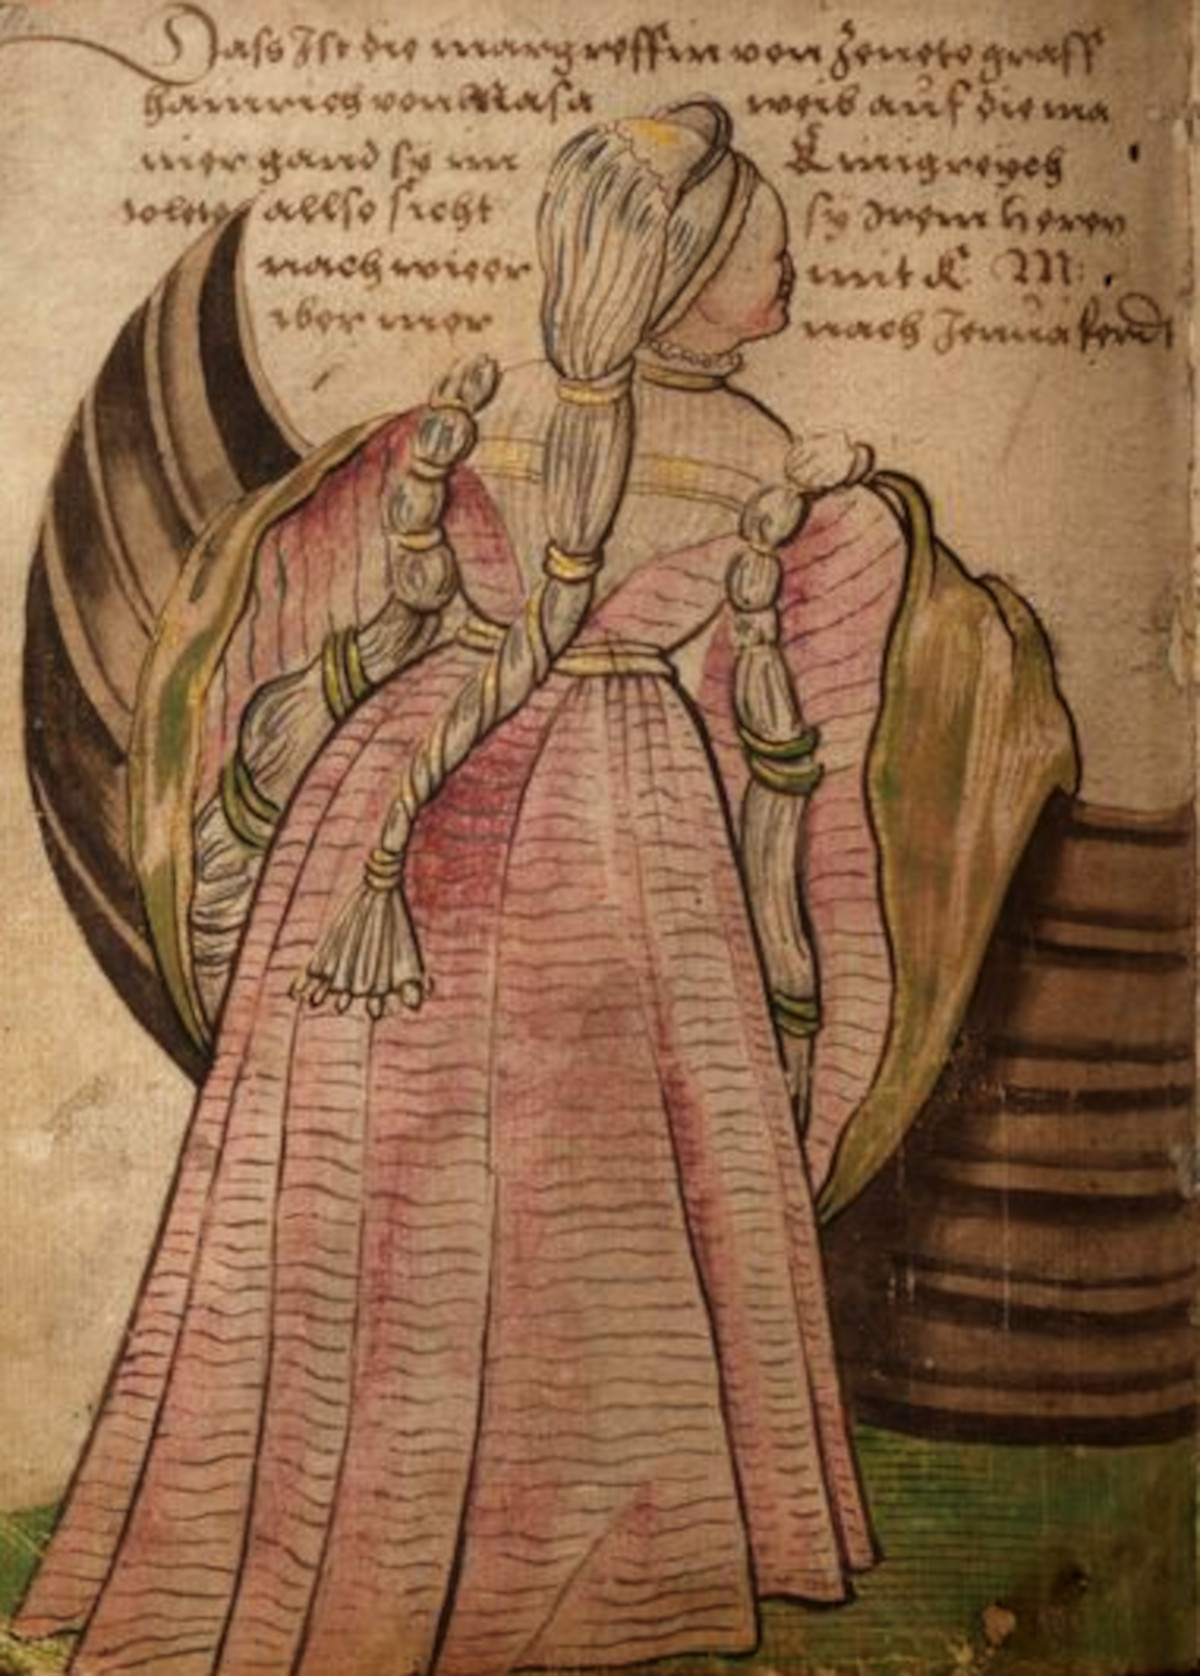 Dass Ist die margreffin von Zenete graff
hainrich von Nasa weib auf die ma
nier gand sy im Kinigreych
tolete allso sicht sy Irem heren
nach wieer mit K: M:
iber mer nach Jenua ferdt